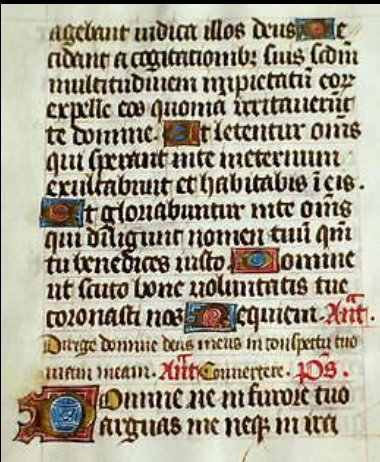 agebant iudica illos deus De
cidant a cogitationibz suis scdm
multitudinem impietatū eorz
expelle eos quoniā irritauerūt
te domine. Et letentur oms
qui sperant inte ineternum
exultabunt et habitabis ī eis.
Et gloriabuntur inte oms
qui diligunt nomen tuū qm̄
tu benedices iusto. Domine
ut scuto bone voluntatis tue
coronasti nos Requiem. Ant.
Dirige domine deus meus in conspectu tuo
uiam meam. Ant Conuertere. Ps.
Domine ne in furore tuo
arguas me neqz in ira